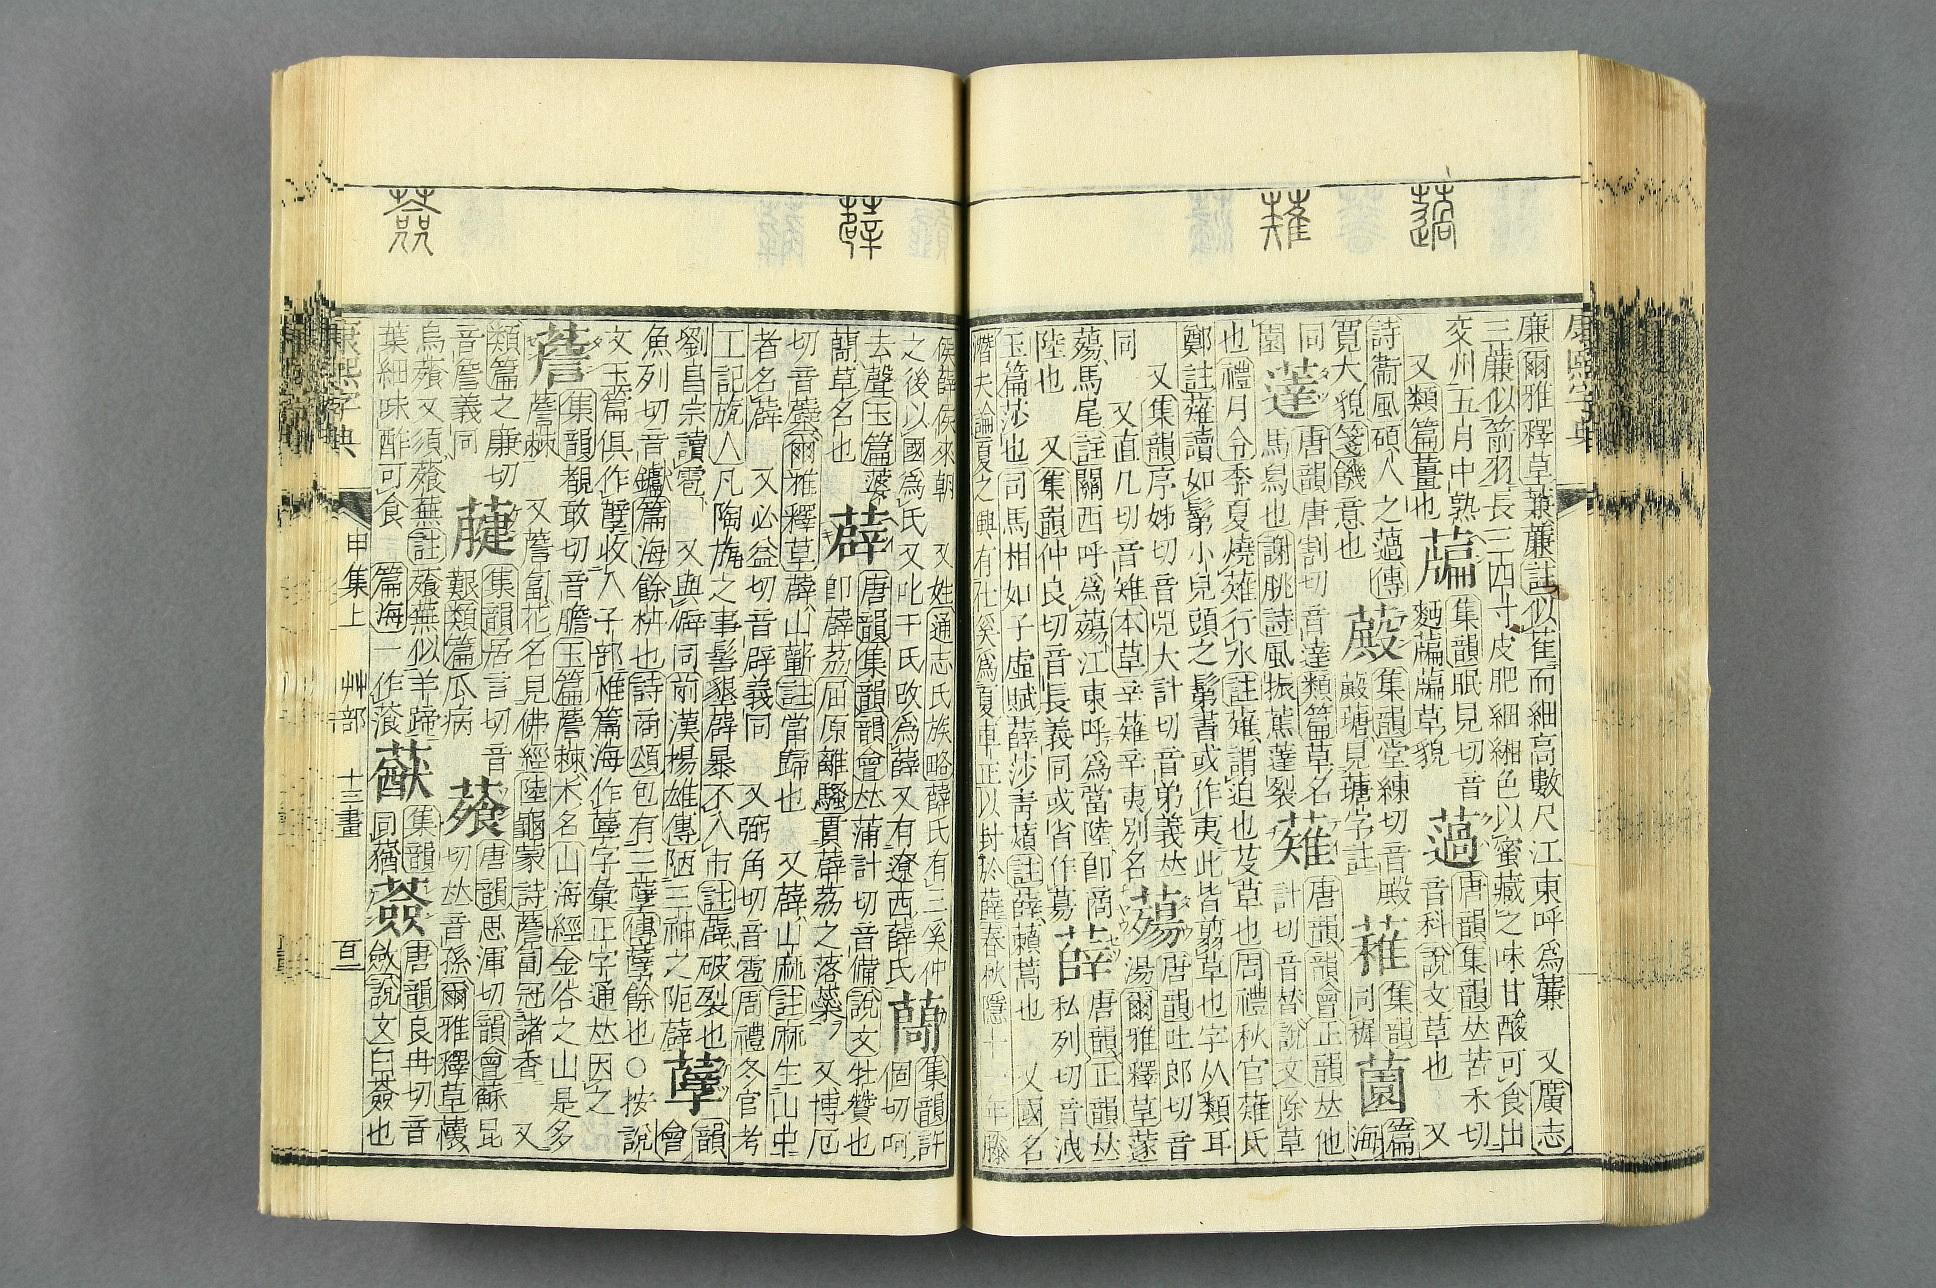 康熙字典
廉爾雅釋草薕薕註似萑而細高數尺江東呼爲薕 又廣志
三薕似箭羽長三四寸皮肥細緗色以蜜藏之味甘酸可食出
交州五月中熟 薍 集韻眠見切音 薖 唐韻集韻苁苦禾切
又類篇薑也 麪 草貌 音科說文草也 又
詩衞風碩人之薖傳 集韻堂練切音殿 集韻
寬大貌箋饑意也 薂 見 字註 同 薗 篇海
同 薘 唐韻唐割切音達類篇草名 薙 唐韻韻會正韻苁他
園 馬舄也謝脁詩風振蕉薘裂 計切音替說文除草
也禮月令季夏燒薙行水註薙謂迫也芟草也周禮秋官薙氏
鄭註薙讀如鬀小兒頭之鬀書或作夷此皆翦草也字从類耳
又集韻序姊切音兕大計切音弟義苁 薚 唐韻吐郎切音
同 又直几切音雉本草辛薙辛夷別名 湯爾雅釋草蓫
薚馬尾註關西呼爲薚江東呼爲當陸卽商 唐韻正韻苁
陸也 又集韻仲良切音長義同或省作募 薛 私列切音洩
玉篇莎也司馬相如子虛賦薛莎靑薠註薛藾蒿也 又國名
潛夫論夏之興有任奚爲夏車正以封於薛春秋隱十一年滕
侯薛侯來朝 又姓通志氏族略薛氏有二奚仲
之後以國爲氏又叱干氏改爲薛又有遼西薛氏 集韻許
去聲玉篇 薜 唐韻集韻韻會苁蒲計切音備說文牡贊也
草名也 卽薜荔屈原離騷貫薜荔之落蘂 又博厄
切音蘗爾雅釋草薜山蘄註當歸也 又薜山麻註麻生山中
者名薜 又必益切音辟義同 又弼角切音雹周禮冬官考
工記旊人凡陶旊之事髻墾薜暴不入市註薜破裂也
劉昌宗讀雹 又與僻同前漢楊雄傳陋三神之阨薜 孽 韻會
魚列切音钀篇海餘枿也詩商頌包有三孽傳孽餘也○按說
文玉篇俱作孼收入子部惟篇海作孽字彙正字通苁因之
薝 集韻覩敢切音膽玉篇薝棘木名山海經金谷之山是多
薝棘 又薝蔔花名見佛經陸龜蒙詩薝蔔冠諸香 又
類篇之廉切 集韻居言切音 唐韻思渾切韻會蘇昆
音詹義同 艱類篇瓜病 薞 切苁音孫爾雅釋草
烏薞又須薞蕪註薞蕪似羊蹄 集韻 唐韻良冉切音
葉細味酢可食 篇海一作蕵 同 薟 斂說文白薟也
康熙字典
申集上 艸部 十三畫